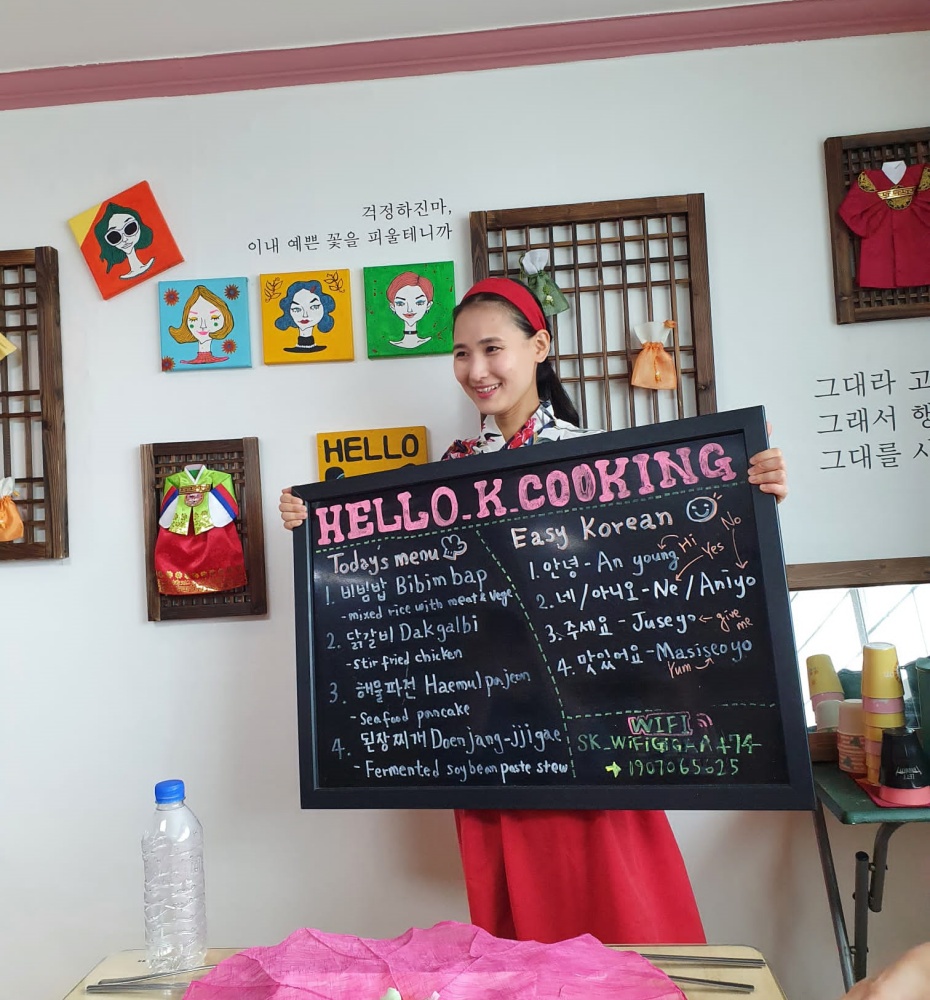 걱정하진마,
이내 예쁜 꽃을 피울테니까
그대라
그래서
그대를
HELLO
HELLO_K_COOKING
Today's menu
1. 비빔밥 Bibimbap
- mixed rice with meat & vege
2. 닭갈비 Dakgalbi
- stir fried chicken
3. 해물파전 Haemulpajeon
- Seafood pancake
4. 된장찌개 Doenjang-jjigae
- Fermented soybean paste stew
Easy Korean
1. 안녕 - An young Hi
2. 네/아니오 - Ne / Aniyo Yes No
3. 주세요 - Juseyo ← give me
4. 맛있어요 - Masiseoyo
Yum
WIFI
→ 1907065625